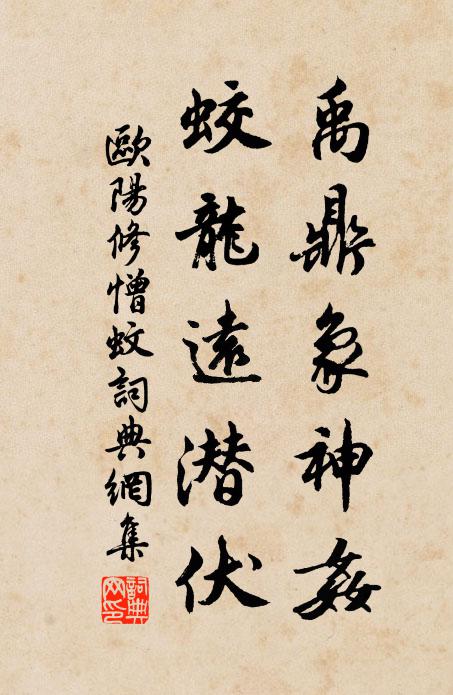 禹鼎象神姦
蛟龍遠潛伏
歐陽修憎蚊詞典網集
詞典网印